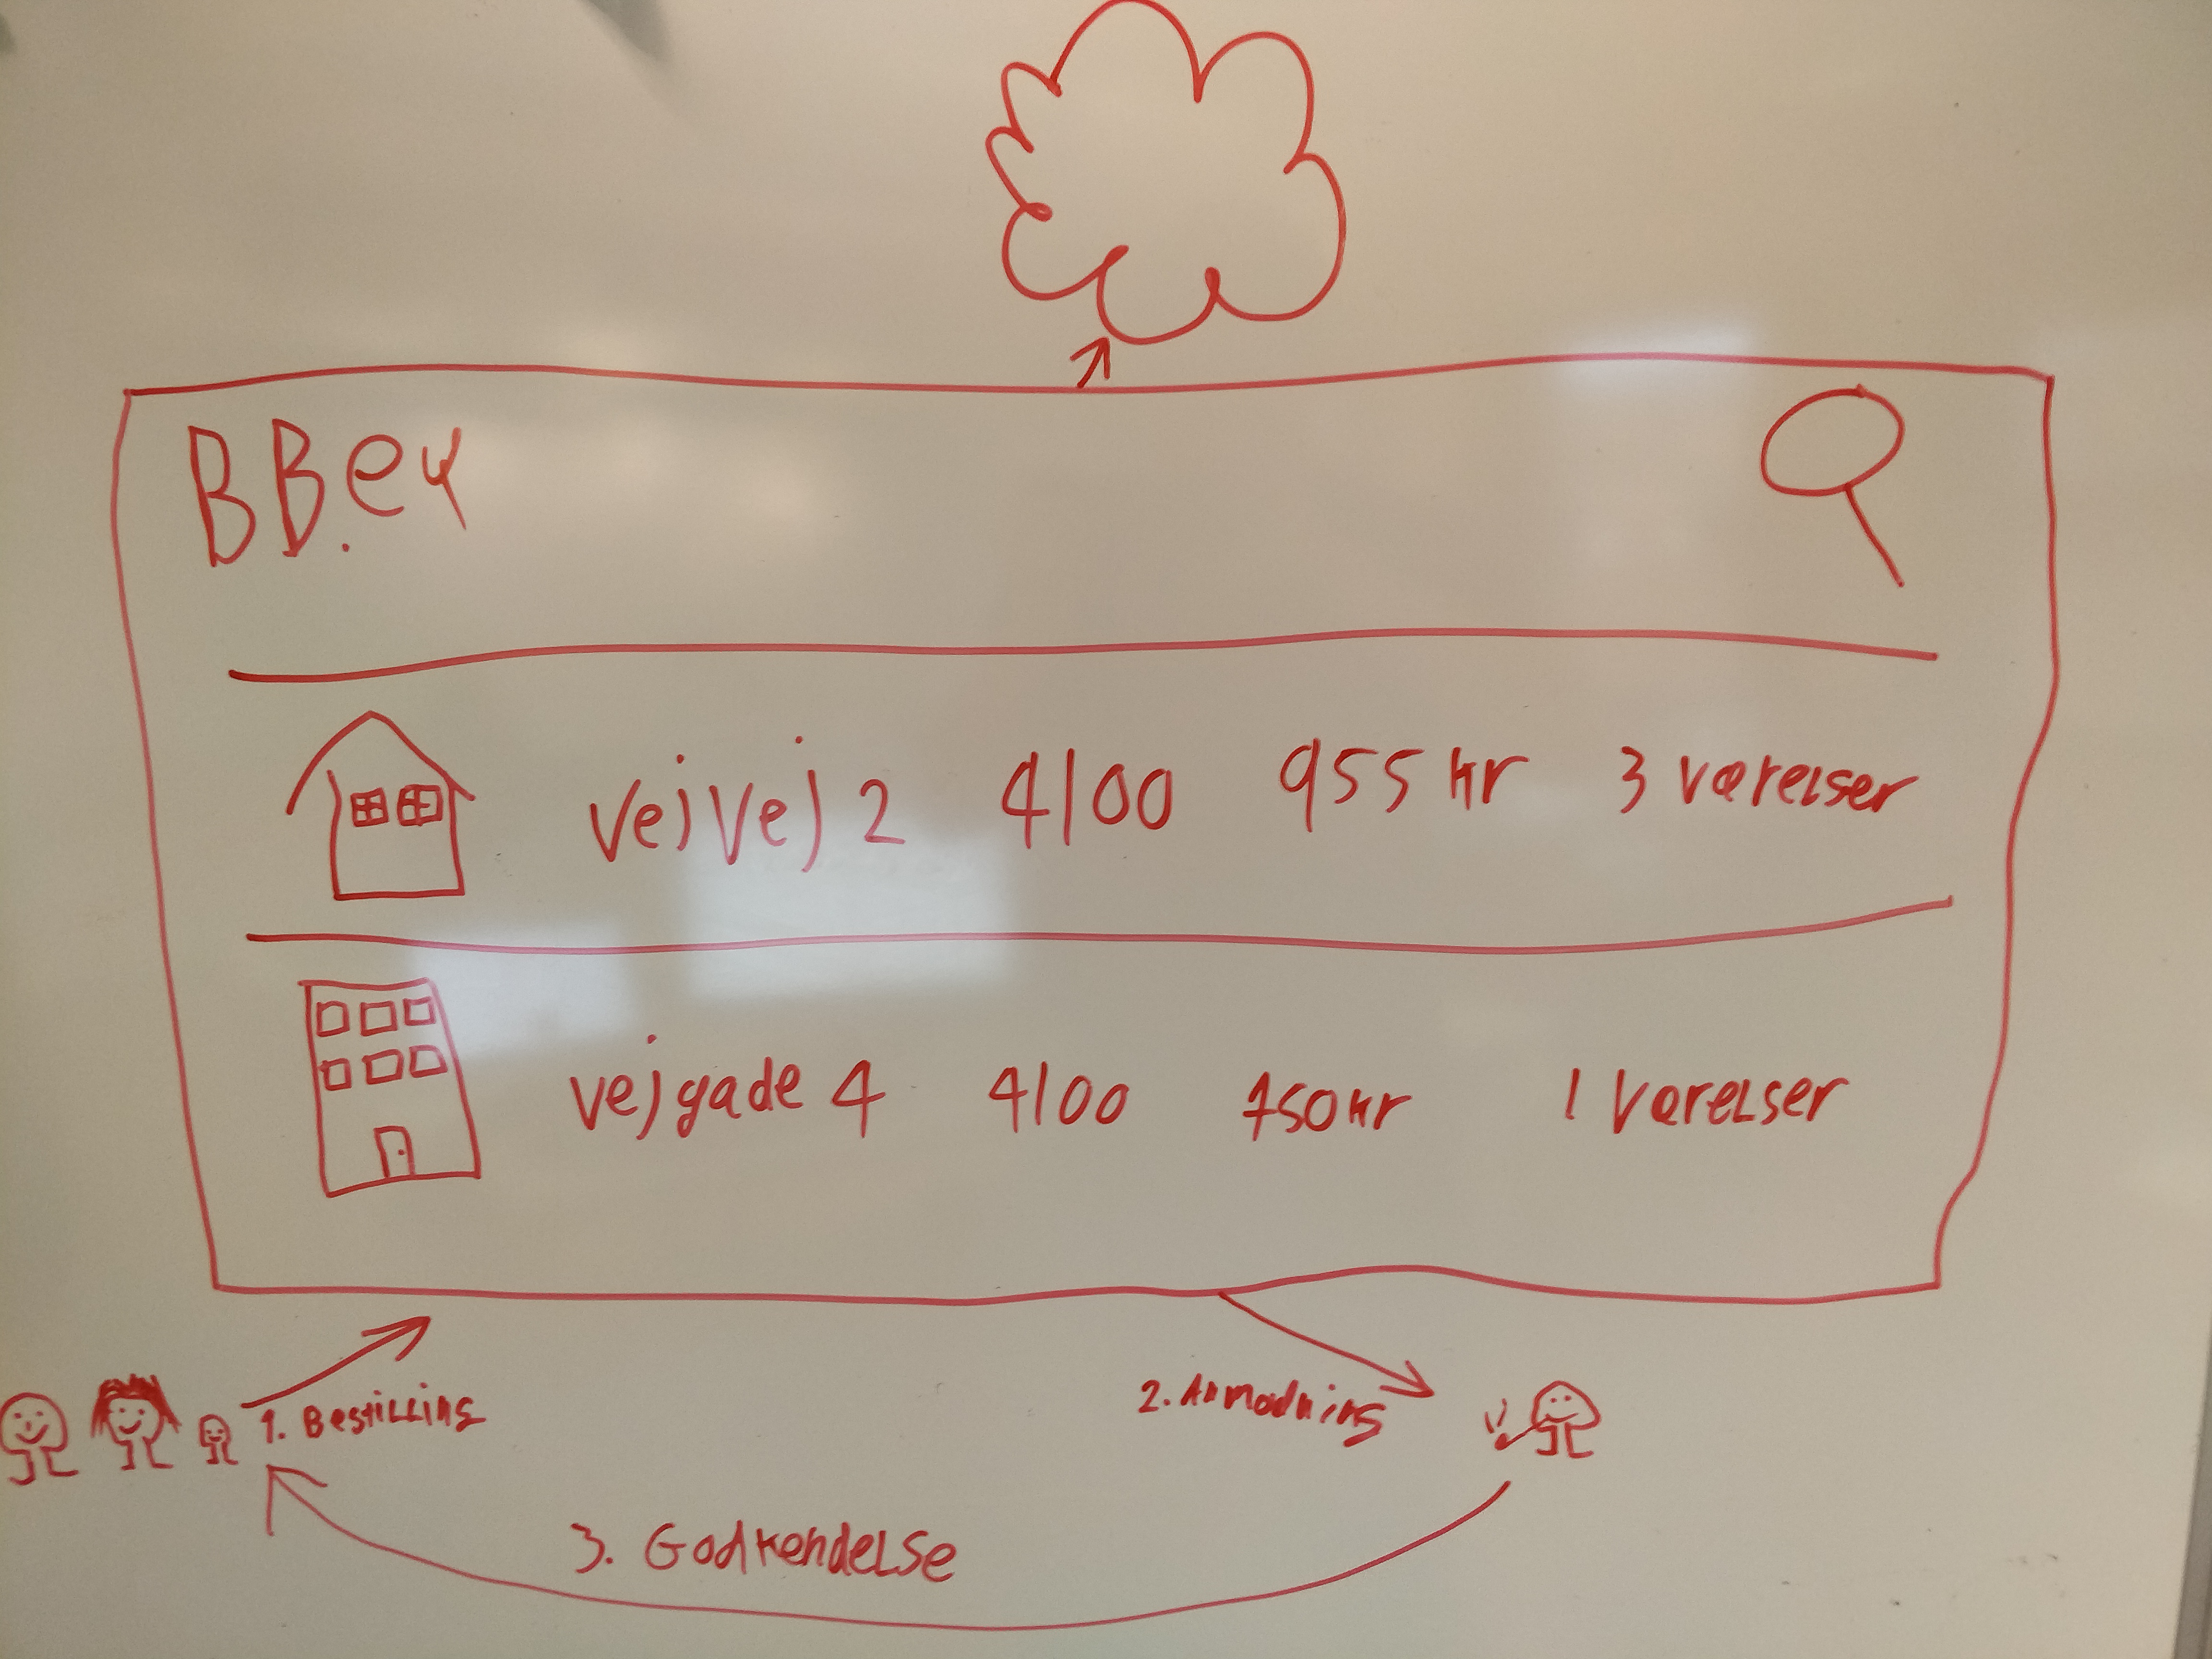 BB.ey
Vejvej 2 4100 955 kr 3 værelser
vejgade 4 4100 750 kr 1 værelser
1. Bestilling
2. Anmodning
3. Godkendelse